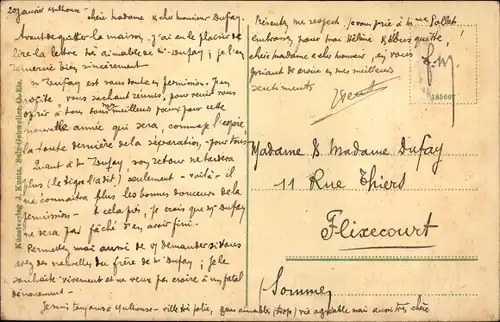 20 janvier Mulhouse - chère madame & cher monsieur Dufay
Avant de quitter la maison, j'ai eu le plaisir de
lire la lettre si aimable de Mr Dufay; je l'en
remercie bien sincèrement.
Mr Dufay est sans doute en permission. J'en
profite vous sachant réunis, pour venir vous
offrir à tous tous meilleurs vœux pour cette
nouvelle année qui sera, comme je l'espère,
la toute dernière de la séparation, pour tous.
Quant à Mr Dufay, son retour ne tardera
plus (le Tigre l'a dit) seulement - voilà - il
ne connaîtra plus les bonnes douceurs de la
permission - à cela près, je crois que Mr Dufay
ne sera pas fâché d'en avoir fini.
Permettez moi aussi de vs demander si vous
avez des nouvelles du frère de Mr Dufay; je le
souhaite vivement et ne veux pas croire à un fatal
dénouement.
Je suis toujours à Mulhouse - ville si jolie, gens aimables (trop) vie agréable mais aussi très chère
Présentez mes respects, je vous prie à Mme Pollet
embrassez pour moi Hélène &
chère madame & cher monsieur, en vous
priant de croire en mes meilleurs
sentiments
f.m.
185607
Madame & Madame Dufay
11 Rue Thiers
Flixecourt
(Somme)
Kunstverlag J. Kuntz, Sulz-Gebweiler O.-Els.